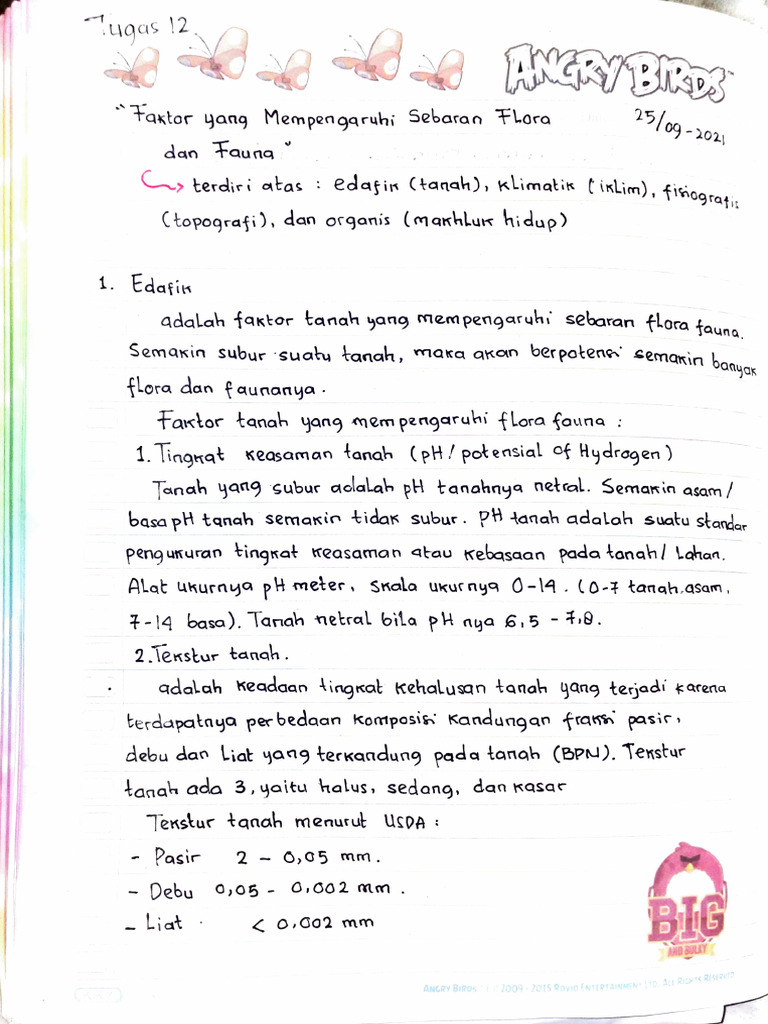 Tugas 12
ANGRY BIRDS™
"Faktor yang Mempengaruhi Sebaran Flora
25/09-2021
dan Fauna"
terdiri atas : edafik (tanah), klimatik (iklim), fisiografis
(topografi), dan organis (makhluk hidup)
1. Edafik
adalah faktor tanah yang mempengaruhi sebaran flora fauna.
Semakin subur suatu tanah, maka akan berpotensi semakin banyak
flora dan faunanya.
Faktor tanah yang mempengaruhi flora fauna :
1. Tingkat keasaman tanah (pH/potensial of Hydrogen)
Tanah yang subur adalah pH tanahnya netral. Semakin asam/
basa pH tanah semakin tidak subur. pH tanah adalah suatu standar
pengukuran tingkat keasaman atau kebasaan pada tanah/lahan.
Alat ukurnya pH meter, skala ukurnya 0-14. (0-7 tanah asam,
7-14 basa). Tanah netral bila pH nya 6,5 - 7,8.
2. Tekstur tanah.
adalah keadaan tingkat kehalusan tanah yang terjadi karena
terdapatnya perbedaan komposisi kandungan fraksi pasir,
debu dan liat yang terkandung pada tanah (BPN). Tekstur
tanah ada 3, yaitu halus, sedang, dan kasar
Tekstur tanah menurut USDA :
- Pasir 2 - 0,05 mm.
- Debu 0,05 - 0,002 mm.
- Liat < 0,002 mm
BIG
AND BULKY
ANGRY BIRDS © 2009 - 2015 ROVIO ENTERTAINMENT LTD. ALL RIGHTS RESERVED